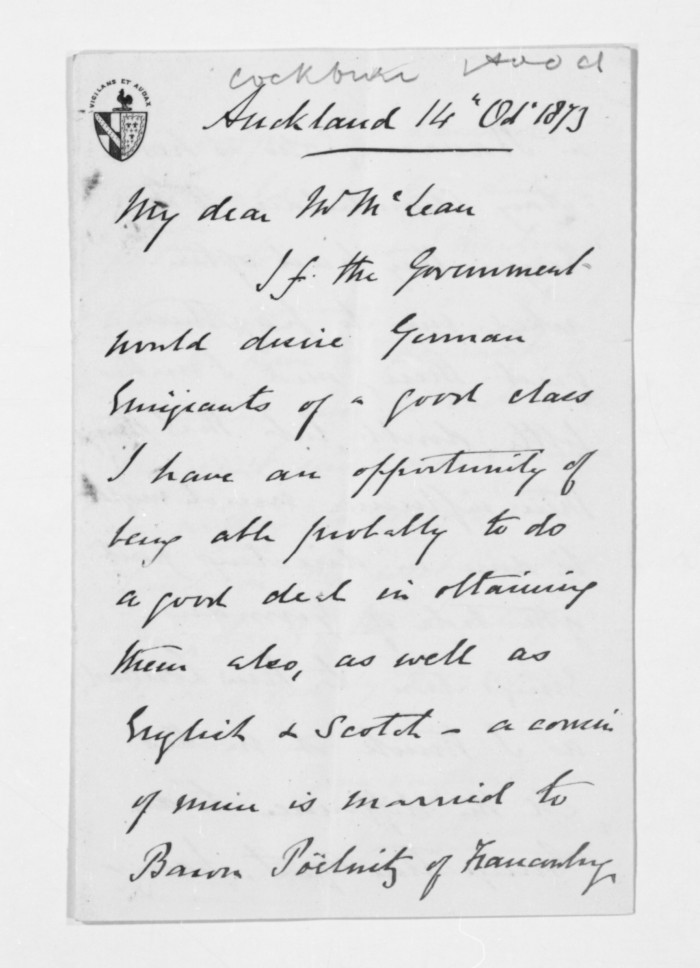 Cockburn Hood
VIGILANS ET AUDAX
Auckland 14" Oct 1873
My dear Mr McLean
If the Government
would desire German
Emigrants of a good class
I have an opportunity of
being able probably to do
a good deal in obtaining
them also, as well as
English & Scotch - a cousin
of mine is married to
Baron Pöelnitz of Franconby